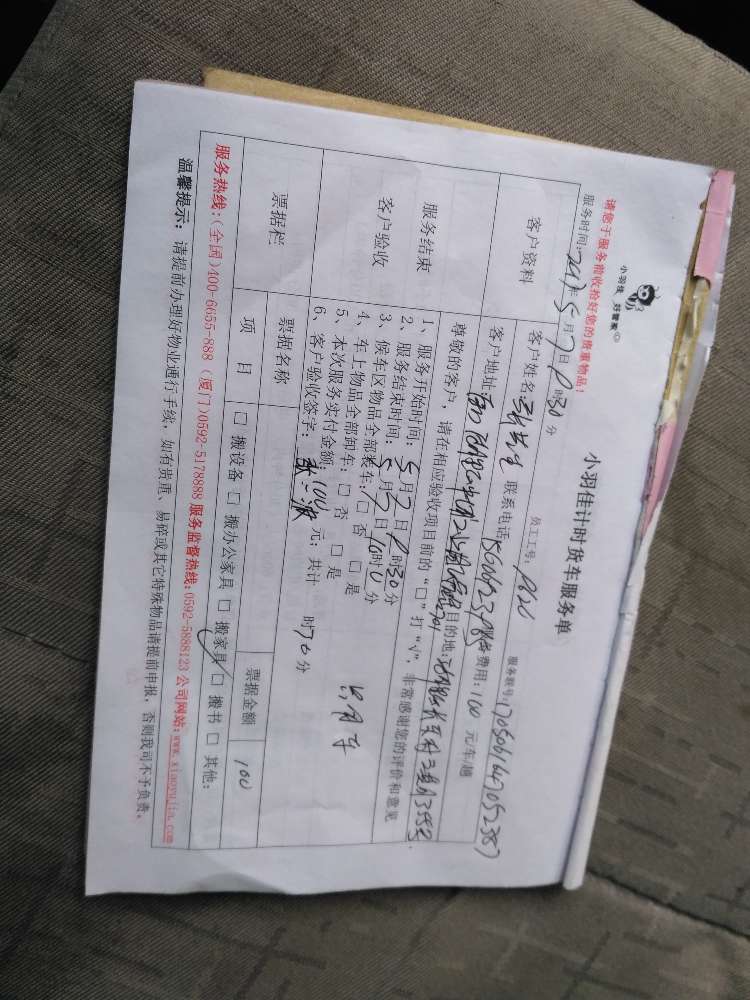 小羽佳 好管家
小羽佳计时货车服务单
请您于服务前收拾好您的贵重物品!
员工工号:
服务联号:1705061647052387
服务时间:2017年5月7日 时30分
客户资料
客户姓名: 联系电话: 服务费用:100元/车/趟
客户地址: 目的地:
服务结束
客户验收
尊敬的客户,请在相应验收项目前的“□”打“√”,非常感谢您的评价和意见
1、服务开始时间:5月7日 时30分
2、服务结束时间:5月7日10时 分
3、候车区物品全部装车:□否 □是
4、车上物品全部卸车:□否 □是
5、本次服务实付金额:100元;共计 时70分
6、客户验收签字:
票据栏
票据名称 票据金额 100
项 目 □搬设备 □搬办公家具 □搬家具 □搬书 □其他:
服务热线:(全国)400-6655-888 (厦门)0592-5178888 服务监督热线:0592-5888123 公司网站:www.xiaoyujia.com
温馨提示:请提前办理好物业通行手续,如有贵重、易碎或其它特殊物品请提前申报,否则我司不予负责。